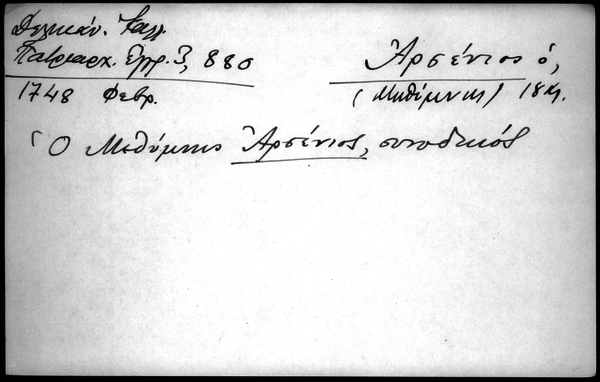 Δελικάν. Καλλ.
Πατριαρχ. Εγγρ. 3, 880
1748 Φεβρ.
Ἀρσένιος ὁ,
(Μηθύμνης) 18ος.
Ὁ Μηθύμνης Ἀρσένιος, συνοδικός